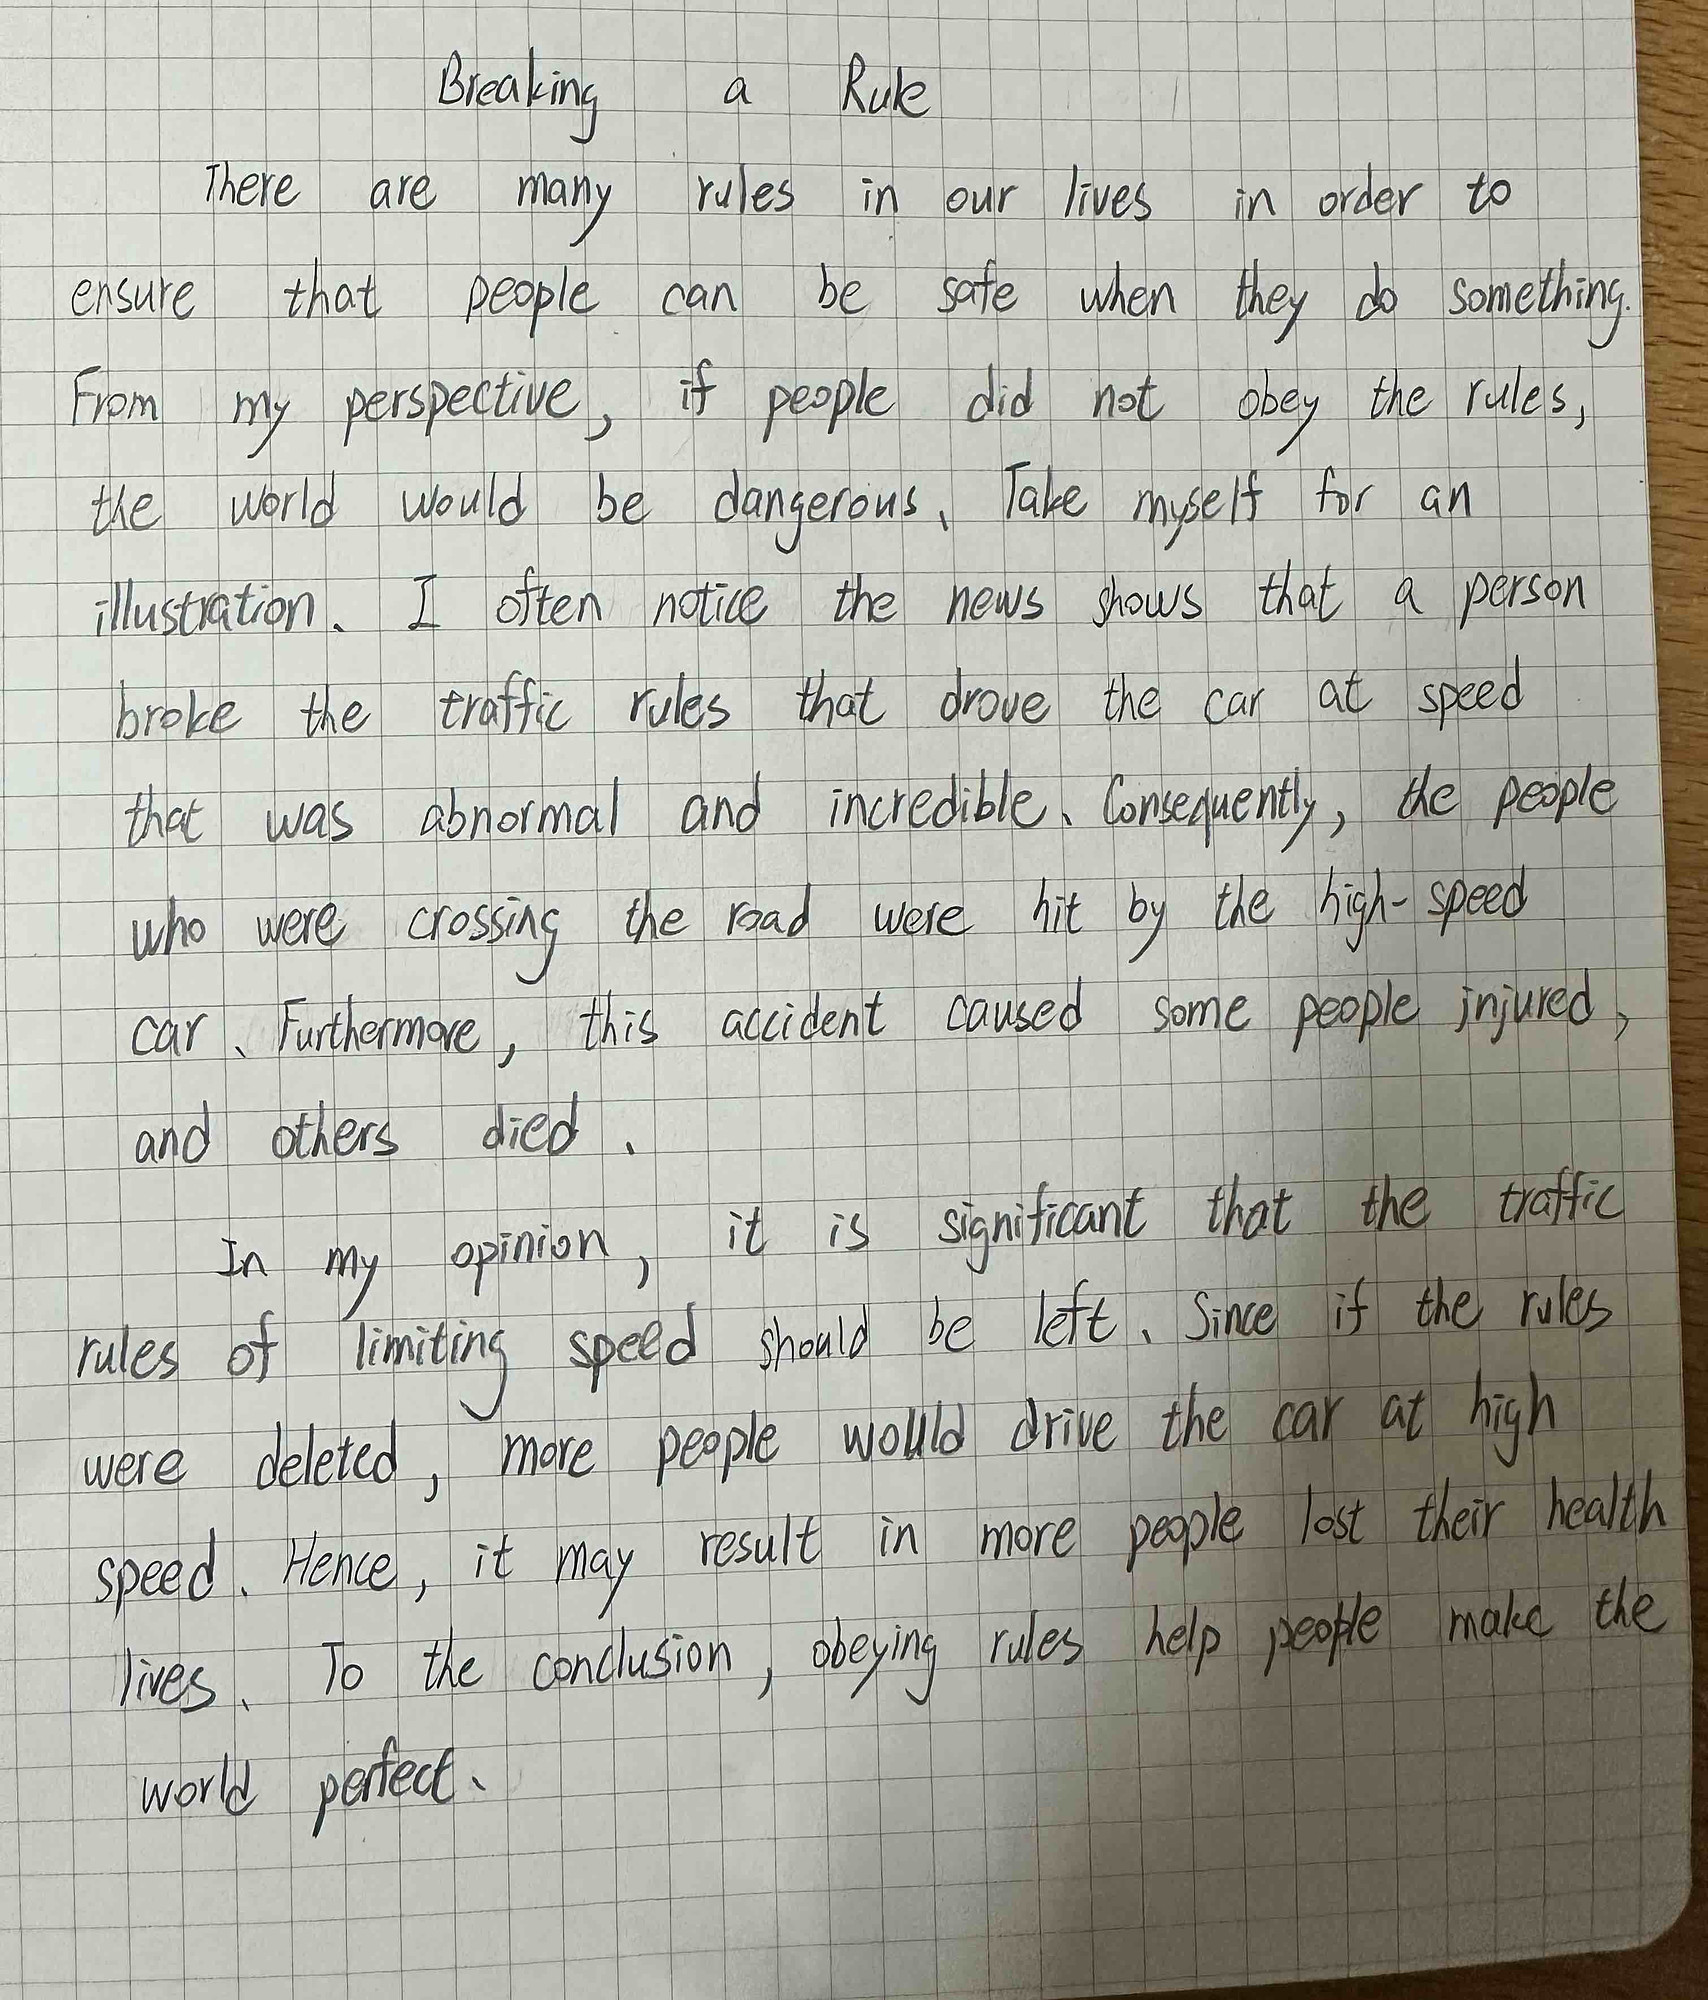 Breaking a Rule
There are many rules in our lives in order to
ensure that people can be safe when they do something.
From my perspective, if people did not obey the rules,
the world would be dangerous. Take myself for an
illustration. I often notice the news shows that a person
broke the traffic rules that drove the car at speed
that was abnormal and incredible. Consequently, the people
who were crossing the road were hit by the high-speed
car. Furthermore, this accident caused some people injured,
and others died.
In my opinion, it is significant that the traffic
rules of limiting speed should be left. Since if the rules
were deleted, more people would drive the car at high
speed. Hence, it may result in more people lost their health
lives. To the conclusion, obeying rules help people make the
world perfect.